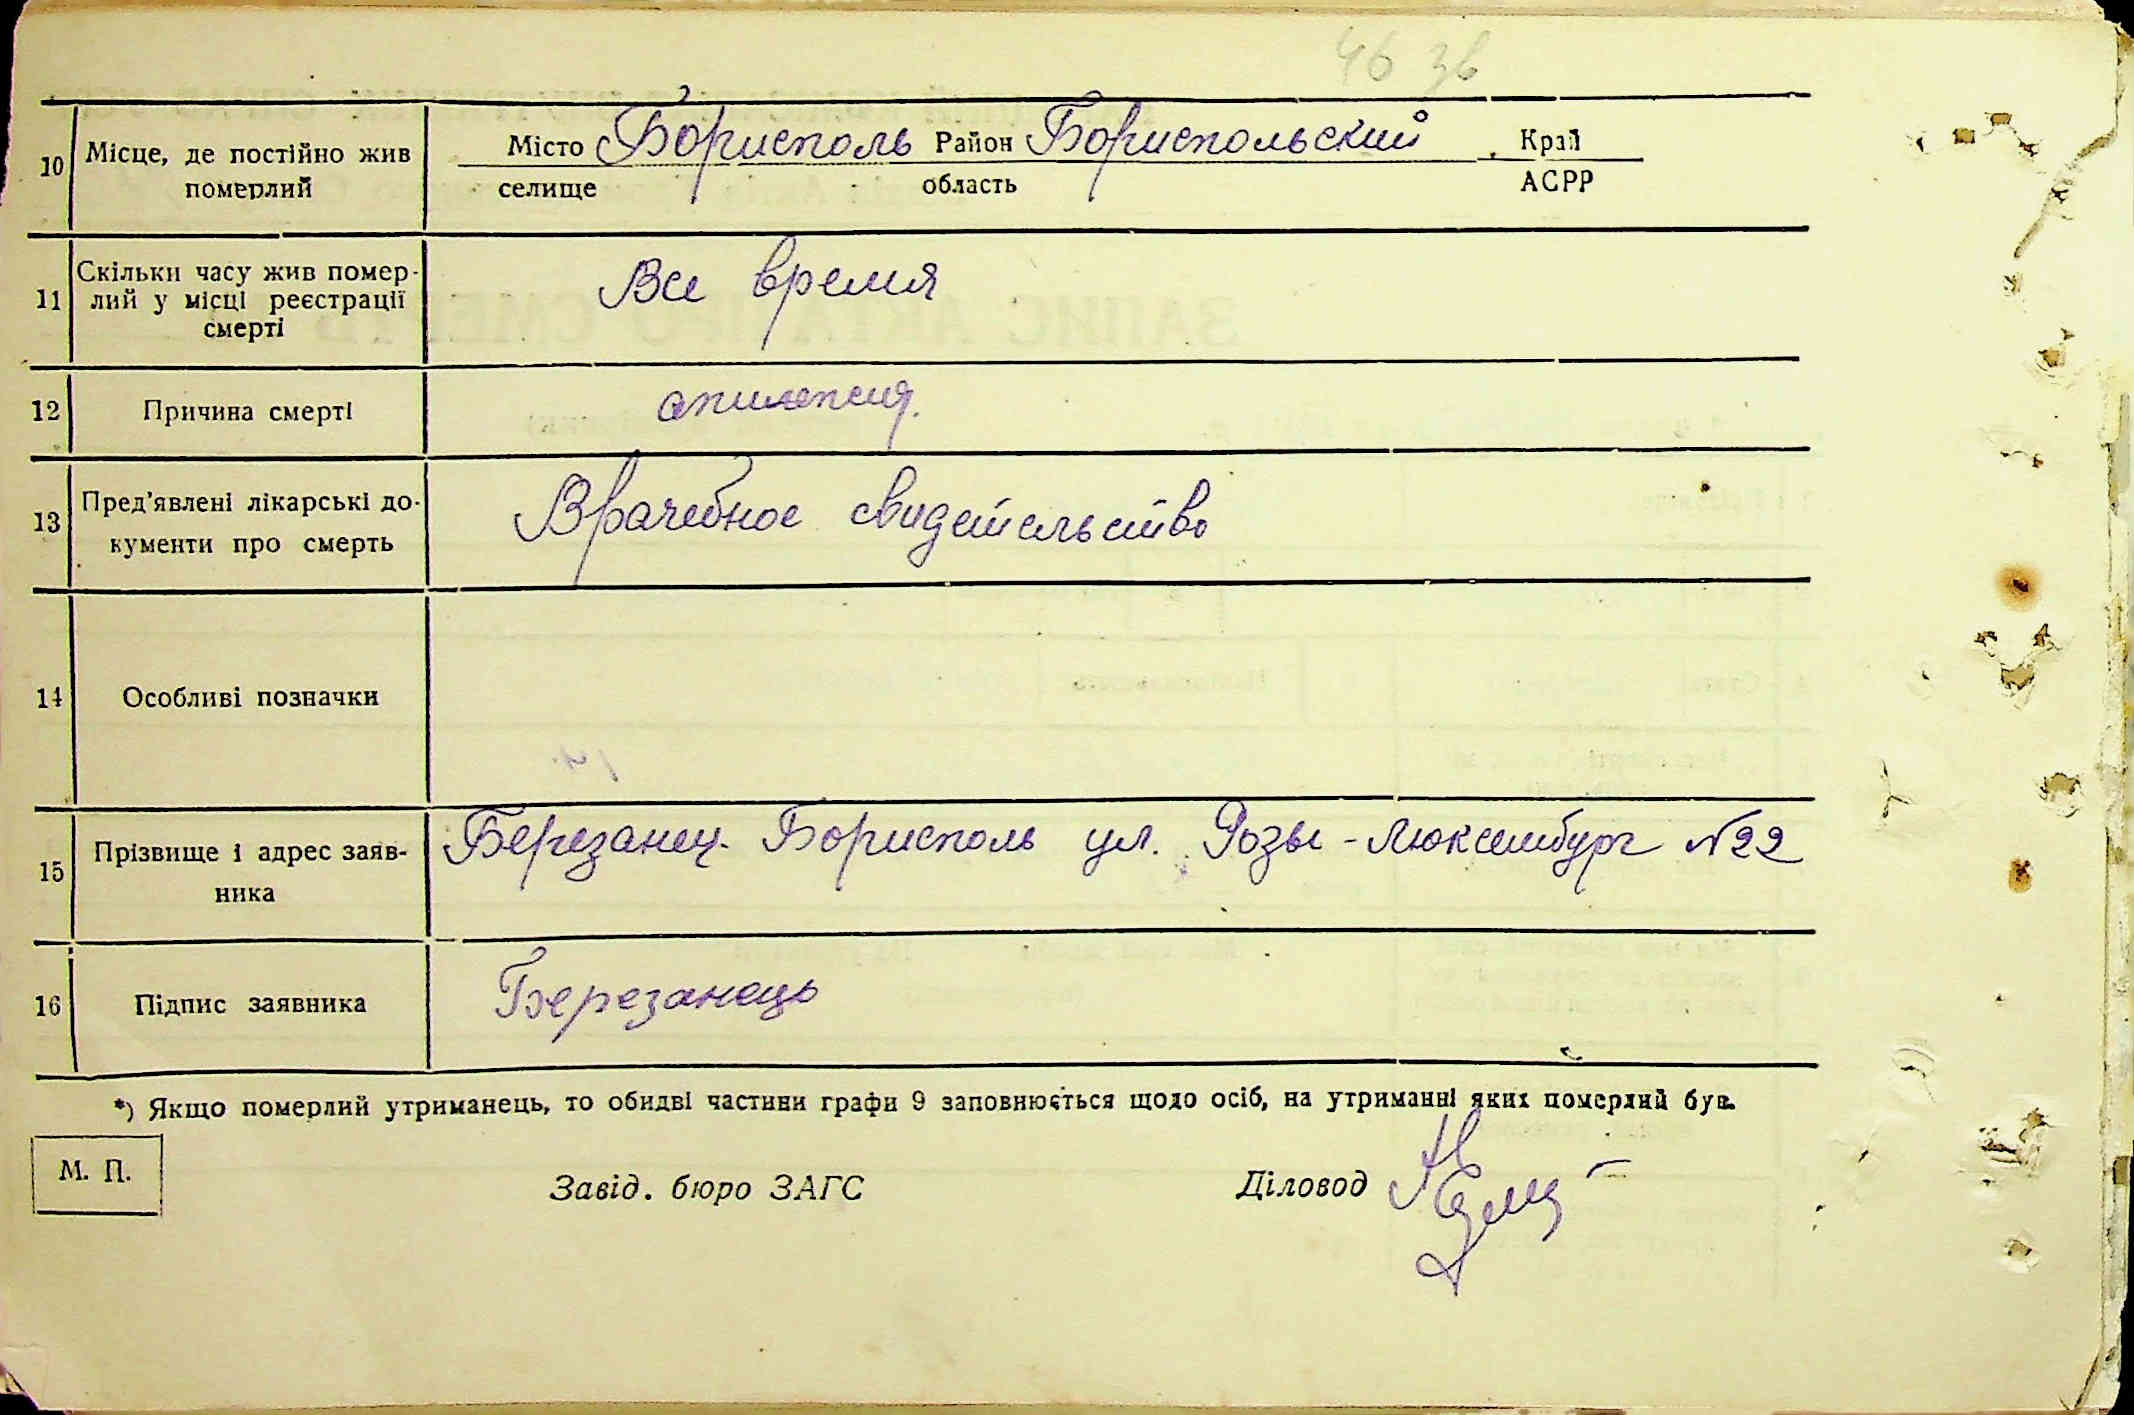 46 зв
10 Місце, де постійно жив померлий Місто Борисполь Район Бориспольский Край
селище область АСРР
11 Скільки часу жив помер-
лий у місці реєстрації
смерті
Все время
12 Причина смерті эпилепсия.
13 Пред'явлені лікарські до-
кументи про смерть
Врачебное свидетельство
14 Особливі позначки
15 Прізвище і адрес заяв-
ника
Березанец. Борисполь ул. Розы-Люксембург №22
16 Підпис заявника Березанець
*) Якщо померлий утриманець, то обидві частини графи 9 заповнюється щодо осіб, на утриманні яких померлий був.
М. П.
Завід. бюро ЗАГС Діловод